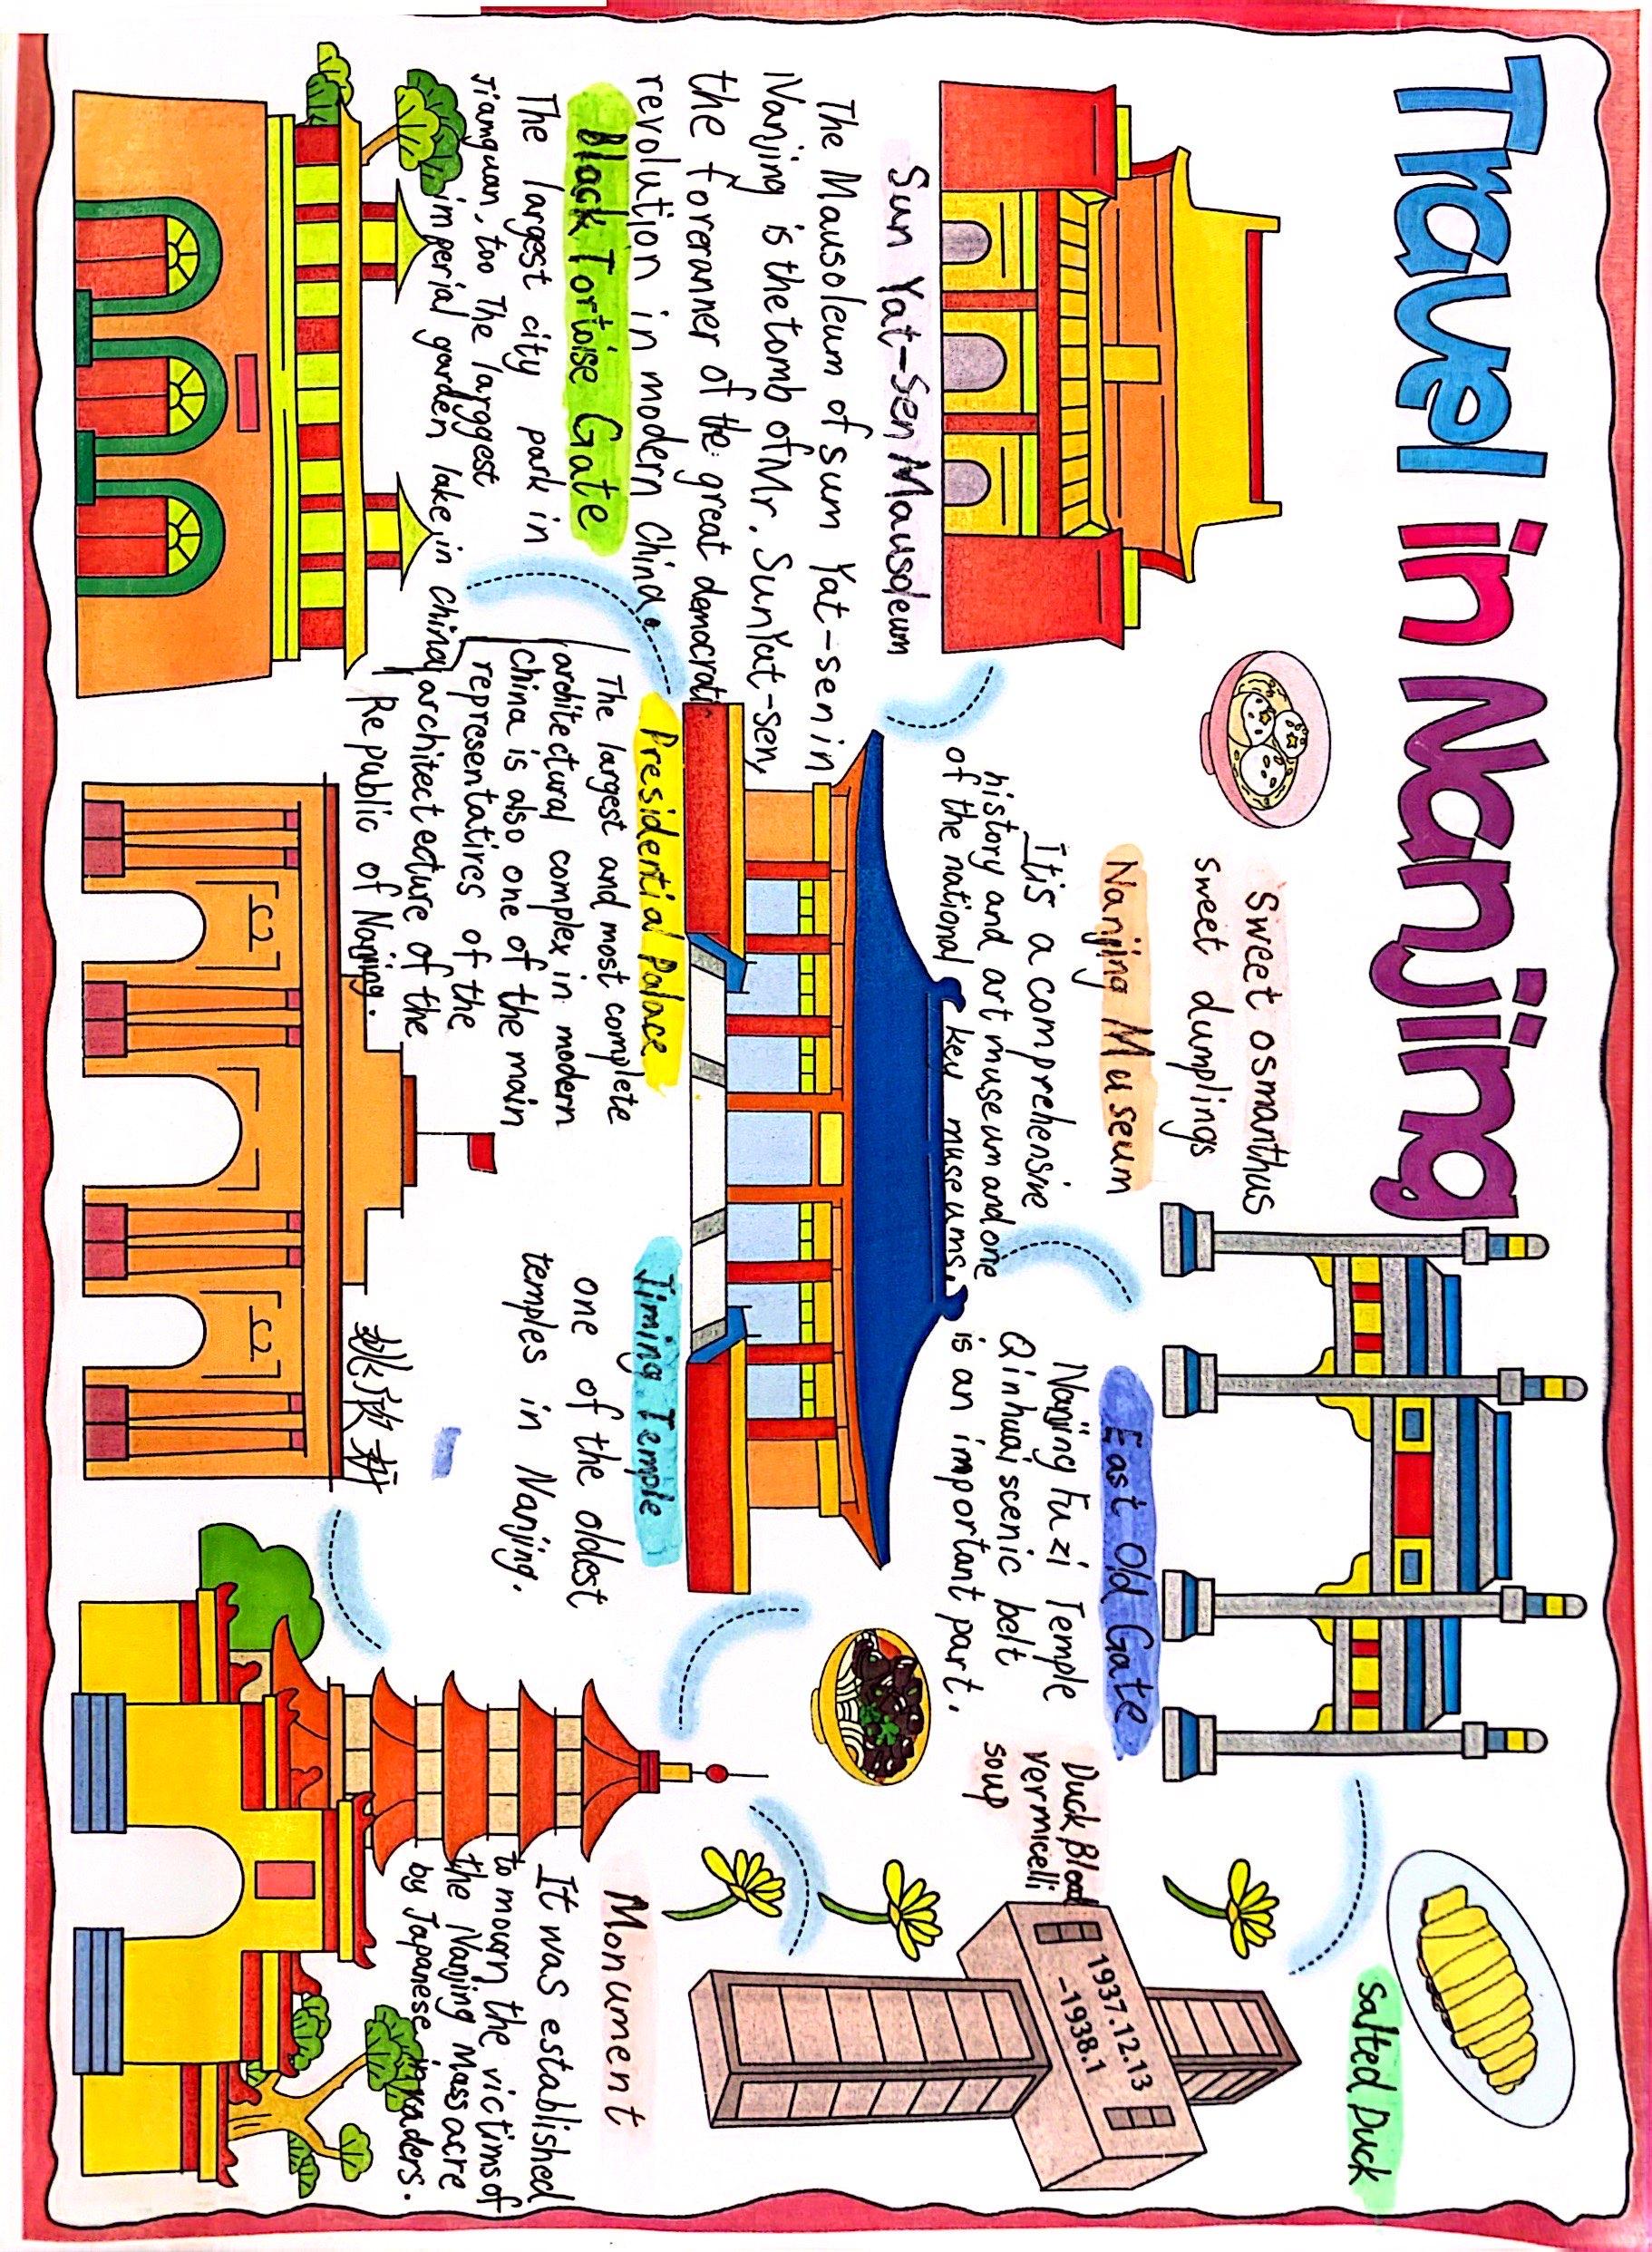 Travel in Nanjing
Sun Yat-Sen Mausoleum
The Mausoleum of sum Yat-sen in
Nanjing is the tomb of Mr. SunYat-sen,
the foreranner of the great democratic
revolution in modern China.
Sweet osmanthus
sweet dumplings
Nanjing Museum
It is a comprehensive
history and art museum and one
of the national key museums.
East Old Gate
Nanjing Fuzi Temple
Qinhuai scenic belt
is an important part.
Duck Blood
vermicelli
soup
Salted Duck
1937.12.13
-1938.1
Black Tortoise Gate
The largest city park in
Jiamguan, too The larggest
imperial garden lake, in China
Presidential Palace
The largest and most complete
architectural complex in modern
China is also one of the main
representatires of the
architecteture of the
Republic of Nanjing.
Jiming Temple
one of the oldest
temples in Nanjing.
姚欣妤
Monument
It was established
to mourn the victims of
the Nanjing massacre
by Japanese invaders.